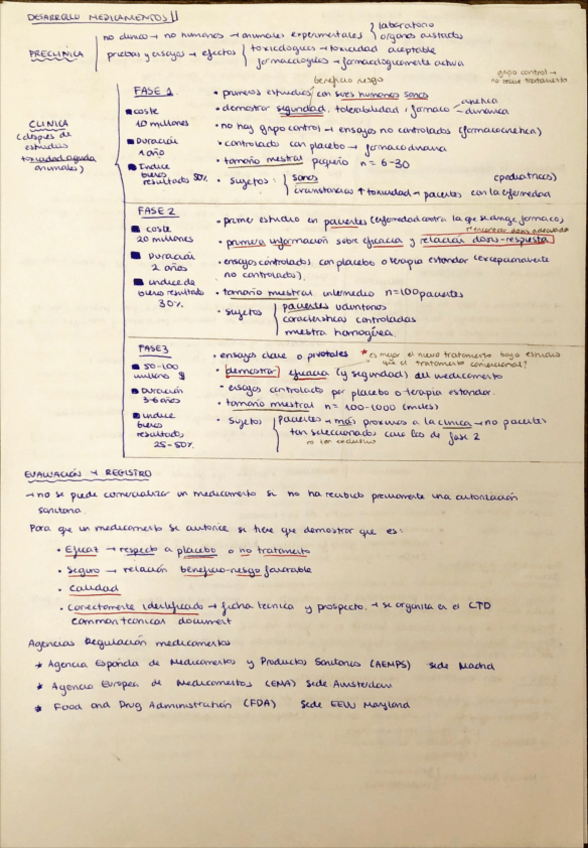 DESARROLLO MEDICAMENTOS
PRECLINICA
no clinico → no humanos → animales experimentales
laboratorio
organos aislados
pruebas y ensayos → efectos
toxicologicos → toxicidad aceptable
farmacologicos → farmacologicamente activa
CLINICA
(despues de
estudios
toxicidad aguda
animales)
FASE 1
coste
10 millones
Duracion
1 año
Indice
bueno
resultados 80%
beneficio riesgo
grupo control →
no recibe tratamiento
• primeros estudios con seres humanos sanos
• demostrar seguridad, tolerabilidad, farmaco
cinetica
dinamica
• no hay grupo control → ensayos no controlados (farmacocinetica)
• controlado con placebo → farmacodinamia
• tamaño mestral pequeño n = 6-30
• sujetos:
sanos (pediatricos)
circunstancias ↑ toxicidad → pacientes con la enfermedad
FASE 2
coste
20 millones
Duracion
2 años
indice de
bueno resultado
30%
• primer estudio en pacientes (enfermedad contra la que se dirige farmaco)
encontrar dosis adecuada
• primera informacion sobre eficacia y relacion dosis-respuesta
• ensayos controlados con placebo o terapia estandar (excepcionalmente
no controlados)
• tamaño muestral intermedio n=100 pacientes
• sujetos
pacientes voluntarios
caracteristicas controladas
muestra homogénea
FASE 3
50-100
millones $
Duracion
3-6 años
indice
bueno
resultado
25-50%
• ensayos clave o pivotales
* es mejor el nuevo tratamiento bajo estudio
que el tratamiento convencional?
• demostrar eficacia (y seguridad) del medicamento
• ensayos controlados por placebo o terapia estandar.
• tamaño mestral n = 100-1000 (miles)
• Sujetos
pacientes → más proximos a la clinica → no pacientes
tan seleccionados como los de fase 2
no tan exclusivo
EVALUACIÓN Y REGISTRO
→ no se puede comercializar un medicamento si no ha recibido previamente una autorización
sanitaria.
Para que un medicamento se autorice se tiene que demostrar que es:
• Eficaz → respecto a placebo o no tratamiento
• Seguro → relación beneficio-riesgo favorable
• Calidad
• Correctamente identificado → ficha técnica y prospecto. → se organiza en el CTD
common tecnical document
Agencias Regulación medicamentos
* Agencia Española de Medicamentos y Productos Sanitarios (AEMPS) sede Madrid
* Agencia Europea de Medicamentos (EMA) Sede Amsterdam
* Food and Drug Administration (FDA) Sede EEUU Maryland